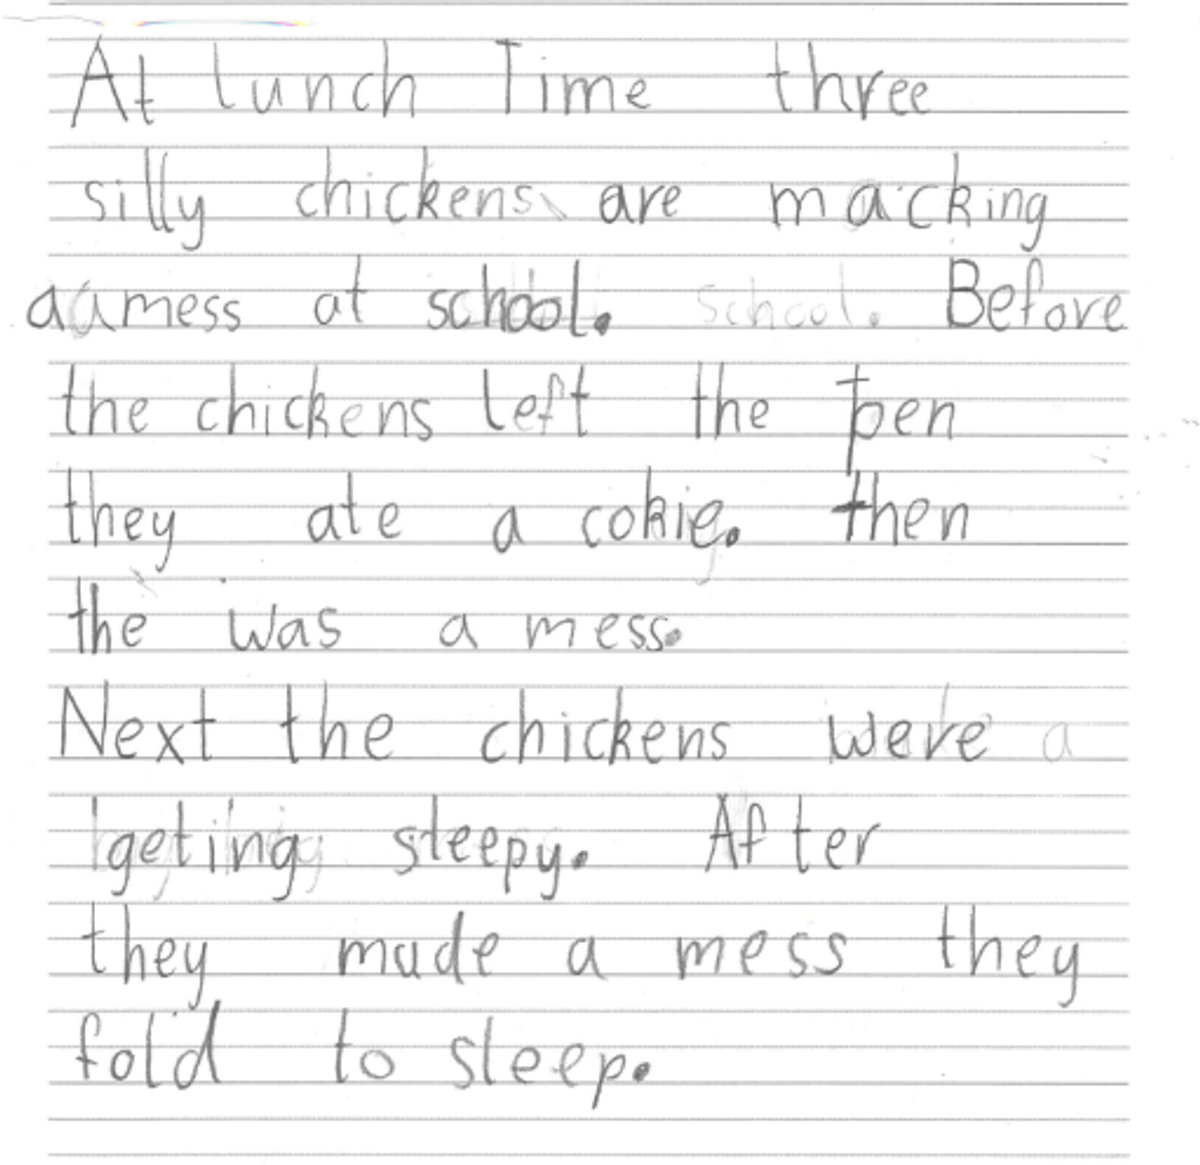 At lunch Time three
silly chickens are macking
a mess at school. Before
the chickens left the pen
they ate a cokie. then
the was a mess.
Next the chickens were
geting sleepy. After
they made a mess they
fold to sleep.